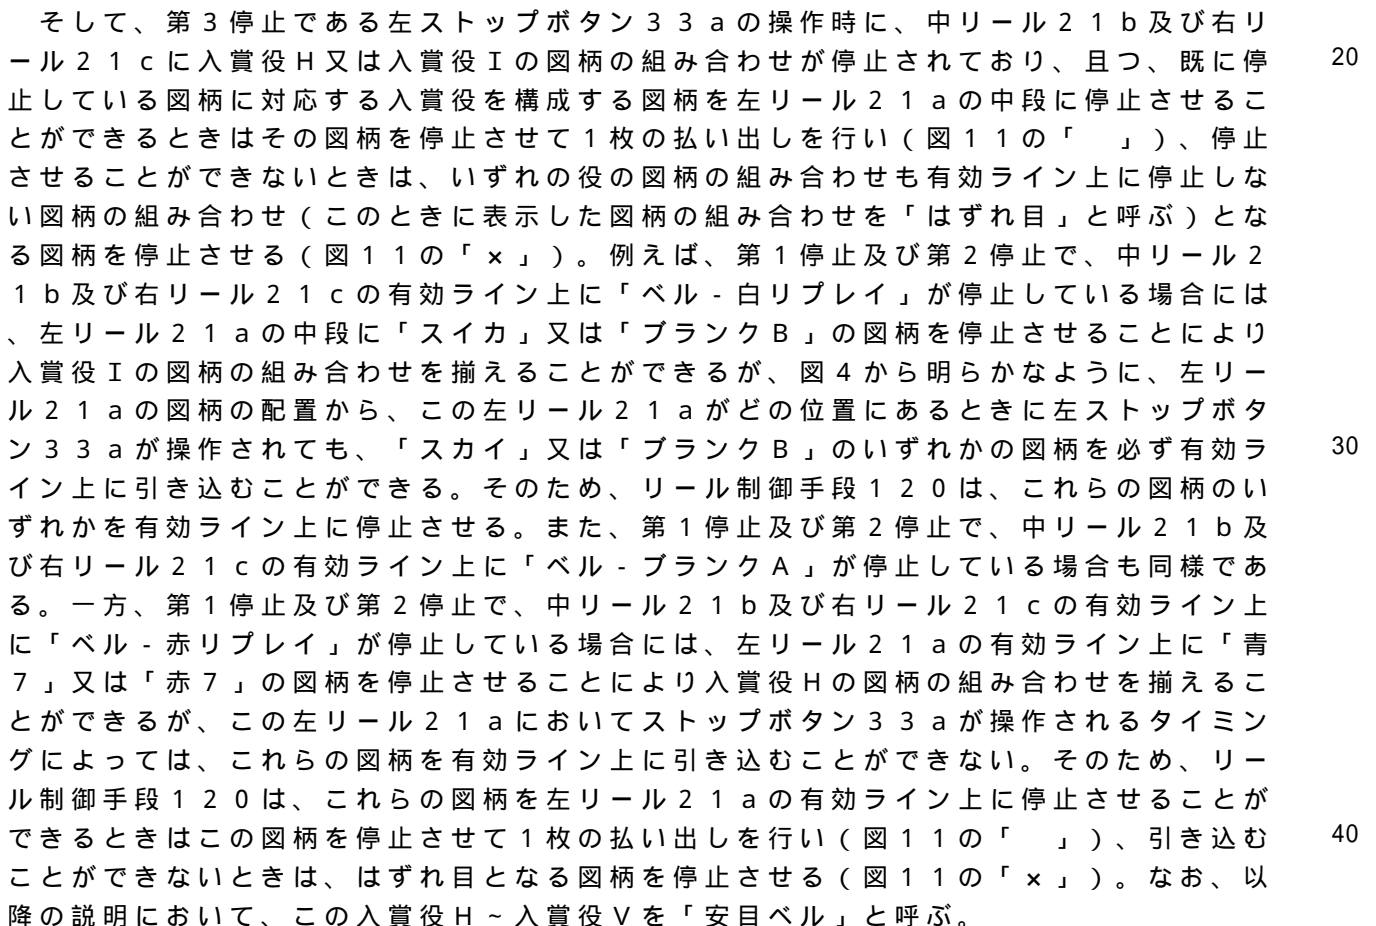 そして、第３停止である左ストップボタン３３ａの操作時に、中リール２１ｂ及び右リ
ール２１ｃに入賞役Ｈ又は入賞役Ｉの図柄の組み合わせが停止されており、且つ、既に停　20
止している図柄に対応する入賞役を構成する図柄を左リール２１ａの中段に停止させるこ
とができるときはその図柄を停止させて１枚の払い出しを行い（図１１の「　」）、停止
させることができないときは、いずれの役の図柄の組み合わせも有効ライン上に停止しな
い図柄の組み合わせ（このときに表示した図柄の組み合わせを「はずれ目」と呼ぶ）とな
る図柄を停止させる（図１１の「×」）。例えば、第１停止及び第２停止で、中リール２
１ｂ及び右リール２１ｃの有効ライン上に「ベル‐白リプレイ」が停止している場合には
、左リール２１ａの中段に「スイカ」又は「ブランクＢ」の図柄を停止させることにより
入賞役Ｉの図柄の組み合わせを揃えることができるが、図４から明らかなように、左リー
ル２１ａの図柄の配置から、この左リール２１ａがどの位置にあるときに左ストップボタ
ン３３ａが操作されても、「スカイ」又は「ブランクＢ」のいずれかの図柄を必ず有効ラ　30
イン上に引き込むことができる。そのため、リール制御手段１２０は、これらの図柄のい
ずれかを有効ライン上に停止させる。また、第１停止及び第２停止で、中リール２１ｂ及
び右リール２１ｃの有効ライン上に「ベル‐ブランクＡ」が停止している場合も同様であ
る。一方、第１停止及び第２停止で、中リール２１ｂ及び右リール２１ｃの有効ライン上
に「ベル‐赤リプレイ」が停止している場合には、左リール２１ａの有効ライン上に「青
７」又は「赤７」の図柄を停止させることにより入賞役Ｈの図柄の組み合わせを揃えるこ
とができるが、この左リール２１ａにおいてストップボタン３３ａが操作されるタイミン
グによっては、これらの図柄を有効ライン上に引き込むことができない。そのため、リー
ル制御手段１２０は、これらの図柄を左リール２１ａの有効ライン上に停止させることが
できるときはこの図柄を停止させて１枚の払い出しを行い（図１１の「　」）、引き込む　40
ことができないときは、はずれ目となる図柄を停止させる（図１１の「×」）。なお、以
降の説明において、この入賞役Ｈ～入賞役Ｖを「安目ベル」と呼ぶ。